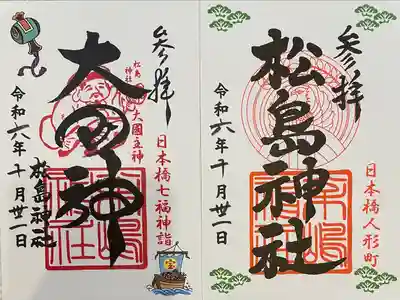 参拝
松島神社
大國主神
大国神
日本橋七福神詣
令和六年十月卅一日
松島神社
宝
参拝
松島神社
日本橋人形町
令和六年十月卅一日